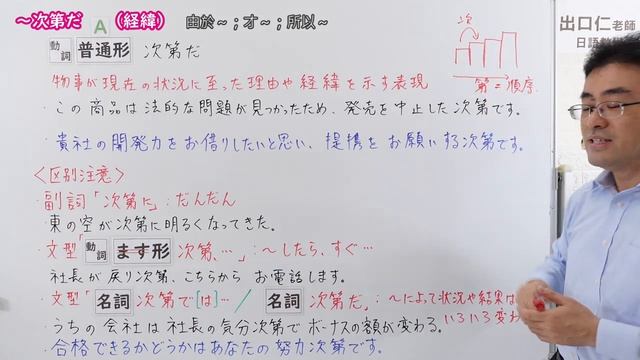 ～次第だ A （経緯） 由於～；才～；所以～
出口仁老師
動詞 普通形 次第だ
次
第＝順序
物事が現在の状況に至った理由や経緯を示す表現
・この商品は法的な問題が見つかったため、発売を中止した次第です。
・貴社の開発力をお借りしたいと思い、提携をお願いする次第です。
＜区別注意＞
・副詞「次第に」：だんだん
東の空が次第に明るくなってきた。
・文型「動詞 ます形 次第、…」：～したら、すぐ…
社長が戻り次第、こちらから お電話します。
・文型「名詞 次第で[は]…／名詞 次第だ。」：～によって状況や結果は
いろいろ変わ
・うちの会社は社長の気分次第でボーナスの額が変わる。
・合格できるかどうかはあなたの努力次第です。